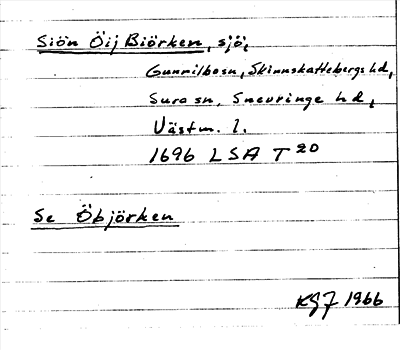 Siön Öij Biörken, sjö,
Gunnilbo sn, Skinnskattebergs hd,
Sura sn, Snevringe hd,
Västm. l.
1696 LSA T 20
Se Öbjörken
KGF 1966